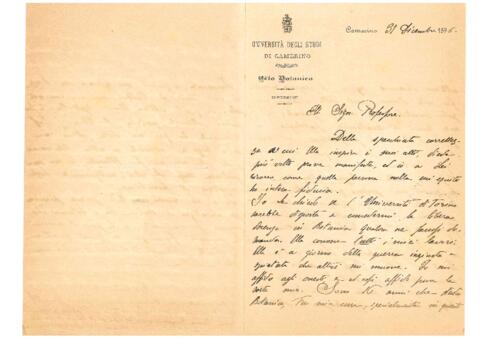 UNIVERSITÀ DEGLI STUDI
DI CAMERINO
Orto Botanico
Camerino, 31 Dicembre 1896.
Sigr Professore,
Della specchiata correttez-
za a cui Ella inspira i suoi atti, 
più volte prova manifesta, ed io a Lei
come quella persona nella cui
ho intera fiducia.
Io ho chiesto a l'Università di Torino
sarebbe disposta a la libera
docenza in Botanica qualora ne facessi do-
manda. Ella conosce tutti i miei lavori.
Ella è a giorno della guerra ingiusta e
spietata che altri mi muove. Io mi
affido agli onesti, e ad essi affido pure la
sorte mia. Sono anni che studio
Botanica, specialmente in questi